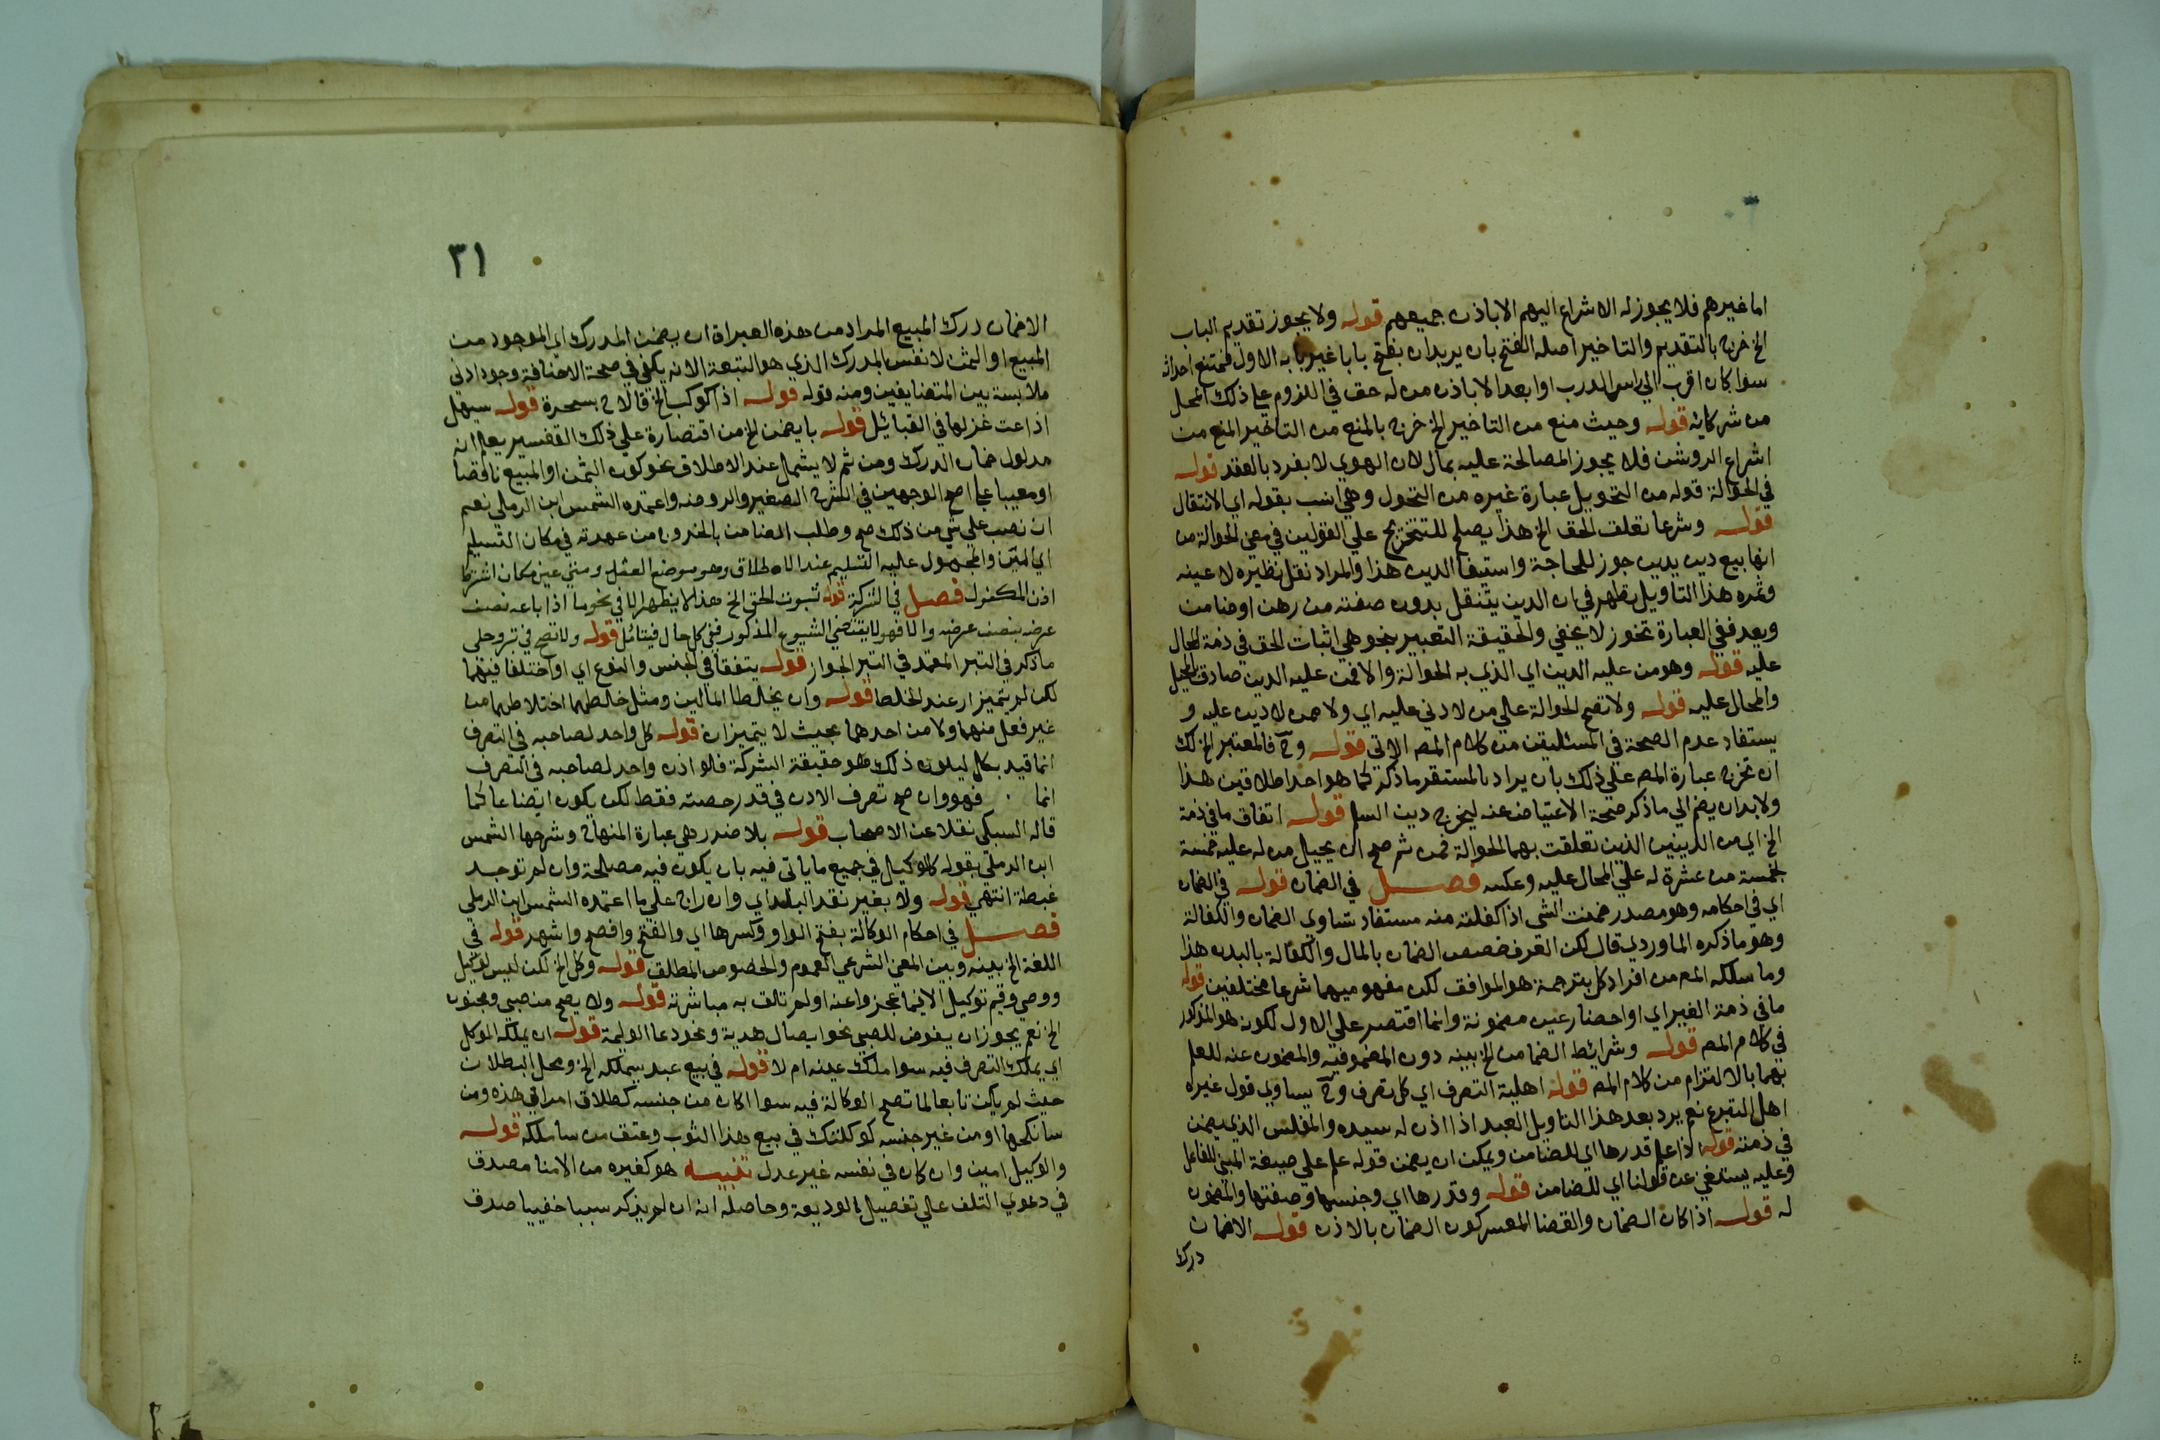 اما غيرهم فلا يجوز له الاشراع اليهم الا باذن جميعهم قوله ولا يجوز تقديم الباب
الخ خرج بالتقديم والتاخير اصله الفتح بان يريد ان يفتح بابا غير بابه الاول فممتنع احداثه
سوا كان اقرب الي راس الدرب او ابعد الا باذن من له حق في اللزوم علي ذلك المحل
من شركايه قوله وحيث منع من التاخير الخ خرج بالمنع من التاخير المنع من
اشراع الروشن فلا يجوز المصالحة عليه بمال لان الهوي لا يفرد بالعقد قوله
في الحوالة قوله من التحويل عبارة غيره من التحول وهي انسب بقوله اي الانتقال
قوله وشرعا تعلق الحق الخ هذا يصلح للتخريج علي القولين في معني الحوالة من
انها بيع دين بدين جوز للحاجة واستيفا الدين هذا والمراد نقل نظيره لا عينه
وثمره هذا التاويل يظهر في ان الدين ينتقل بدون صفته من رهن او ضامن
وبعد ففي العبارة تجوز لا يخفي والحقيقة التعبير بنحو هي اثبات الحق في ذمة المحال
عليه قوله وهو من عليه الدين اي الذي به الحوالة والا فمن عليه الدين صادق بالمحيل
والمحال عليه قوله ولا تصح الحوالة علي من لا دين عليه اي ولا ممن لا دين عليه و
يستفاد عدم الصحة في المسئلتين من كلام المص الاتي قوله وح فالمعتبر الخ لك
ان تخرج عبارة المص علي ذلك بان يراد بالمستقر ما ذكر كما هو احد اطلاقين هذا
ولا بد ان يضم الي ما ذكر صحة الاعتياض عنه ليخرج دين السلم قوله اتفاق ما في ذمة
الخ اي من الدينين الذين تعلقت بهما الحوالة فمن ثم صح ان يحيل من له عليه خمسة
بخمسة من عشرة له علي المحال عليه وعكسه فصل في الضمان قوله في الضمان
اي في احكامه وهو مصدر ضمنت الشي اذا كفلته منه مستفاد تساوي الضمان والكفالة
وهو ما ذكره الماوردي قال لكن العرف خصص الضمان بالمال والكفالة بالبدن هذا
وما سلكه المص من افراد كل بترجمة هو الموافق لكون مفهوميهما شرعا مختلفين قوله
ما في ذمة الغير اي او احضار عين مضمونة وانما اقتصر علي الاول لكونه هو المذكور
في كلام المص قوله وشرائط الضامن الخ بينه دون المضمون فيه والمضمون عنه للعلم
بهما بالالتزام من كلام المص قوله اهلية التصرف اي كل تصرف وح يساوي قول غيره
اهل التبرع نعم يرد بعد هذا التاويل العبد اذا اذن له سيده والمفلس الذي يضمن
في ذمته قوله اذا علم قدرها اي للضامن ويمكن ان يضمن قوله علم علي صيغة المبني للفاعل
وعليه يستغني عن قولنا اي للضامن قوله وقدرها اي وجنسها وصفتها والمضمون
له قوله اذا كان الضمان والقضا المعسر كون الضمان بالاذن قوله الا ضمان
درك
٣١
الا ضمان درك المبيع المراد من هذه العبارة ان يضمن المدرك اي الموجود من
المبيع او الثمن لا نفس الدرك الذي هو التبعة الا انه يكفي في صحة الاضافة وجود ادني
ملابسة بين المتضايفين ومنه قوله قوله اذا كوكب الخرقا لاح بسحرة قوله سهيل
اذاعت غزلها في القبائل قوله بان يضمن الخ من اقتصاره علي ذلك التفسير يعلم انه
مدلول ضمان الدرك ومن ثم لا يشمل عند الاطلاق نحو كون الثمن او المبيع ناقصا
او معيبا علي اصح الوجهين في الشرح الصغير والروضه واعتمده الشمس ابن الرملي نعم
ان نص علي شي من ذلك صح وطلب الضامن بالخروج من عهدته في مكان التسليم
اي المعين والمحمول عليه التسليم عند الاطلاق وهو موضع العقد ومتي عين مكان اشترط
اذن المكفول فصل في الشركة قوله ثبوت الحق الخ هذا لا يظهر الا في نحو ما اذا باعه نصف
عرضه بنصف عرضه والا فهو لا يقتضي الشيوع المذكور في كل حال فيتامل قوله ولا تصح في تبر وحلي
ما ذكر في التبر المعتمد في التبر الجواز قوله يتفقا في الجنس والنوع اي او اختلفا فيهما
لكن لم يتميزا عند الخلط قوله وان يخلطا المالين ومثل خلطهما اختلاطهما من
غير فعل منهما ولا من احدهما بحيث لا يتميزان قوله كل واحد لصاحبه في التصرف
انما قيد بكل ليكون ذلك هو حقيقة الشركة فلو اذن واحد لصاحبه في التصرف
انما فهو وان صح تصرف الاذن في قدر حصته فقط لكن يكون ايضا عا كما
قاله السبكي نقلا عن الاصحاب قوله بلا ضرر هي عبارة المنهاج وشرحها الشمس
ابن الرملي بقوله كالوكيل في جميع ما ياتي فيه بان يكون فيه مصلحة وان لم توجد
غبطة انتهي قوله ولا بغير نقد البلد اي وان راج علي ما اعتمده الشمس ابن الرملي
فصل في احكام الوكالة بفتح الواو وكسرها اي والفتح افصح واشهر قوله في
اللغة الخ بينه وبين المعني الشرعي العموم والخصوص المطلق قوله وكل الخ لكن ليس لوكيل
ووصي وقيم توكيل الا فيما عجزوا عنه او لم تلق به مباشرته قوله ولا يصح من صبي ومجنون
الخ نعم يجوز ان يفوض للصبي نحو ايصال هدية ونحو دعا الوليمة قوله ان يملكه الموكل
اي يملك التصرف فيه سوا ملك عينه ام لا قوله في بيع عبد سيملكه الخ ومحل البطلان
حيث لم يكن تابعا لما تصح الوكالة فيه سوا اكان من جنسه كطلاق امراتي هذه ومن
سانكحها او من غير جنسه كوكلتك في بيع هذا الثوب وعتق من ساملكه قوله
والوكيل امين وان كان في نفسه غير عدل تنبيه هو كغيره من الامنا مصدق
في دعوي التلف علي تفصيل الوديعة وحاصله انه ان لم يذكر سببا خفيا صدق